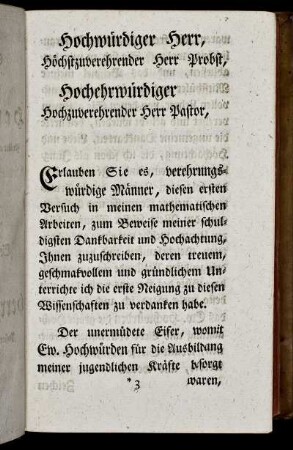 Hochwürdiger Herr,
Höchstzuverehrender Herr Probst,
Hochehrwürdiger
Hochzuverehrender Herr Pastor,
Erlauben Sie es, verehrungs-
würdige Männer, diesen ersten
Versuch in meinen mathematischen
Arbeiten, zum Beweise meiner schul-
digsten Dankbarkeit und Hochachtung,
Ihnen zuzuschreiben, deren treuem,
geschmakvollem und gründlichem Un-
terrichte ich die erste Neigung zu diesen
Wissenschaften zu verdanken habe.
Der unermüdete Eifer, womit
Ew. Hochwürden für die Ausbildung
meiner jugendlichen Kräfte besorgt
*3 waren,